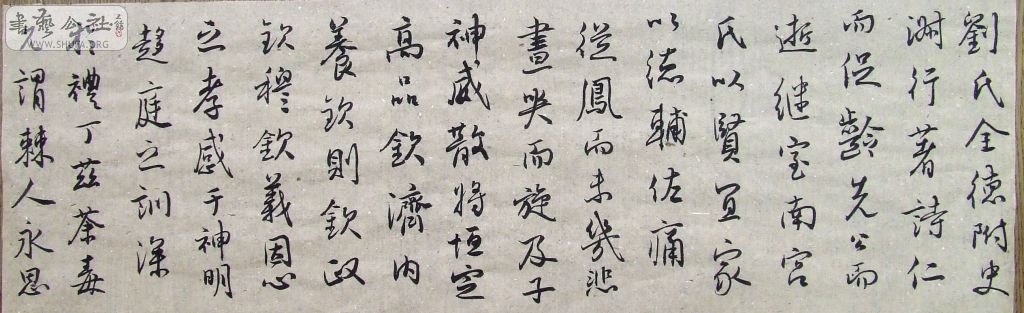 劉氏全德附史
渊行著詩仁
而促齡先公而
逝继室南宫
氏以賢宜家
以德輔佐痛
從鳳而未幾悲
晝哭而旋及子
神威散將恒定
高品欽濟内
養欽則欽政
欽穆欽義因心
之孝感于神明
趍庭之訓深
於禮丁兹荼毒
謂棘人永思
書藝公社
WWW.SHUFA.ORG